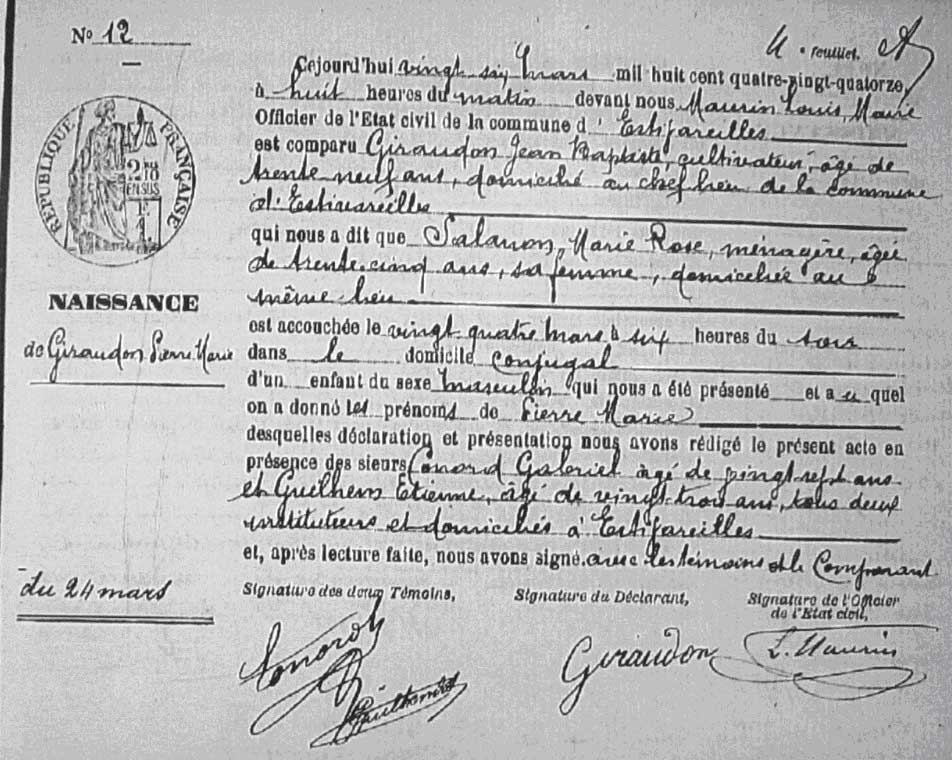 N° 12
4e feuillet.
RÉPUBLIQUE FRANÇAISE
2/10
EN SUS
Cejourd'hui vingt six mars mil huit cent quatre-vingt-quatorze,
à huit heures du matin devant nous Maurin Louis, Marie
Officier de l'Etat civil de la commune d'Estivareilles
est comparu Giraudon Jean Baptiste, cultivateur, âgé de
trente neuf ans, domicilié au chef lieu de la commune
d'Estivareilles
qui nous a dit que Salanon, Marie Rose, ménagère, âgée
de trente-cinq ans, sa femme, domiciliée au
même lieu
NAISSANCE
est accouchée le vingt quatre mars à six heures du soir
de Giraudon Pierre Marie
dans le domicile conjugal
d'un enfant du sexe masculin qui nous a été présenté et auquel
on a donné les prénoms de Pierre Marie
desquelles déclaration et présentation nous avons rédigé le présent acte en
présence des sieurs Conord Gabriel âgé de vingt-sept ans
et Guilhem Etienne, âgé de vingt-trois ans, tous deux
instituteurs et domiciliés à Estivareilles
et, après lecture faite, nous avons signé avec les témoins et le Comparant
du 24 mars
Signature des deux Témoins, Signature du Déclarant, Signature de l'Officier
de l'Etat civil,
Conord
Giraudon L. Maurin